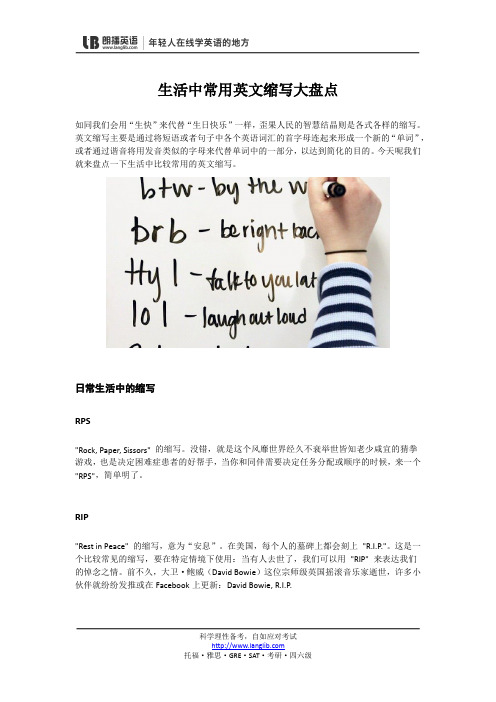 朗播英语
www.langlib.com
年轻人在线学英语的地方
生活中常用英文缩写大盘点
如同我们会用“生快”来代替“生日快乐”一样，歪果人民的智慧结晶则是各式各样的缩写。
英文缩写主要是通过将短语或者句子中各个英语词汇的首字母连起来形成一个新的“单词”，
或者通过谐音将用发音类似的字母来代替单词中的一部分，以达到简化的目的。今天呢我们
就来盘点一下生活中比较常用的英文缩写。
btw - by the w
brb - be right bac
ttyl - talk to you lat
lol - laugh out loud
日常生活中的缩写
RPS
"Rock, Paper, Sissors" 的缩写。没错，就是这个风靡世界经久不衰举世皆知老少咸宜的猜拳
游戏，也是决定困难症患者的好帮手，当你和同伴需要决定任务分配或顺序的时候，来一个
"RPS"，简单明了。
RIP
"Rest in Peace" 的缩写，意为“安息”。在美国，每个人的墓碑上都会刻上 "R.I.P."。这是一
个比较常见的缩写，要在特定情境下使用：当有人去世了，我们可以用 "RIP" 来表达我们
的悼念之情。前不久，大卫·鲍威（David Bowie）这位宗师级英国摇滚音乐家逝世，许多小
伙伴就纷纷发推或在 Facebook 上更新：David Bowie, R.I.P.
科学理性备考，自如应对考试
http://www.langlib.com
托福·雅思·GRE·SAT·考研·四六级